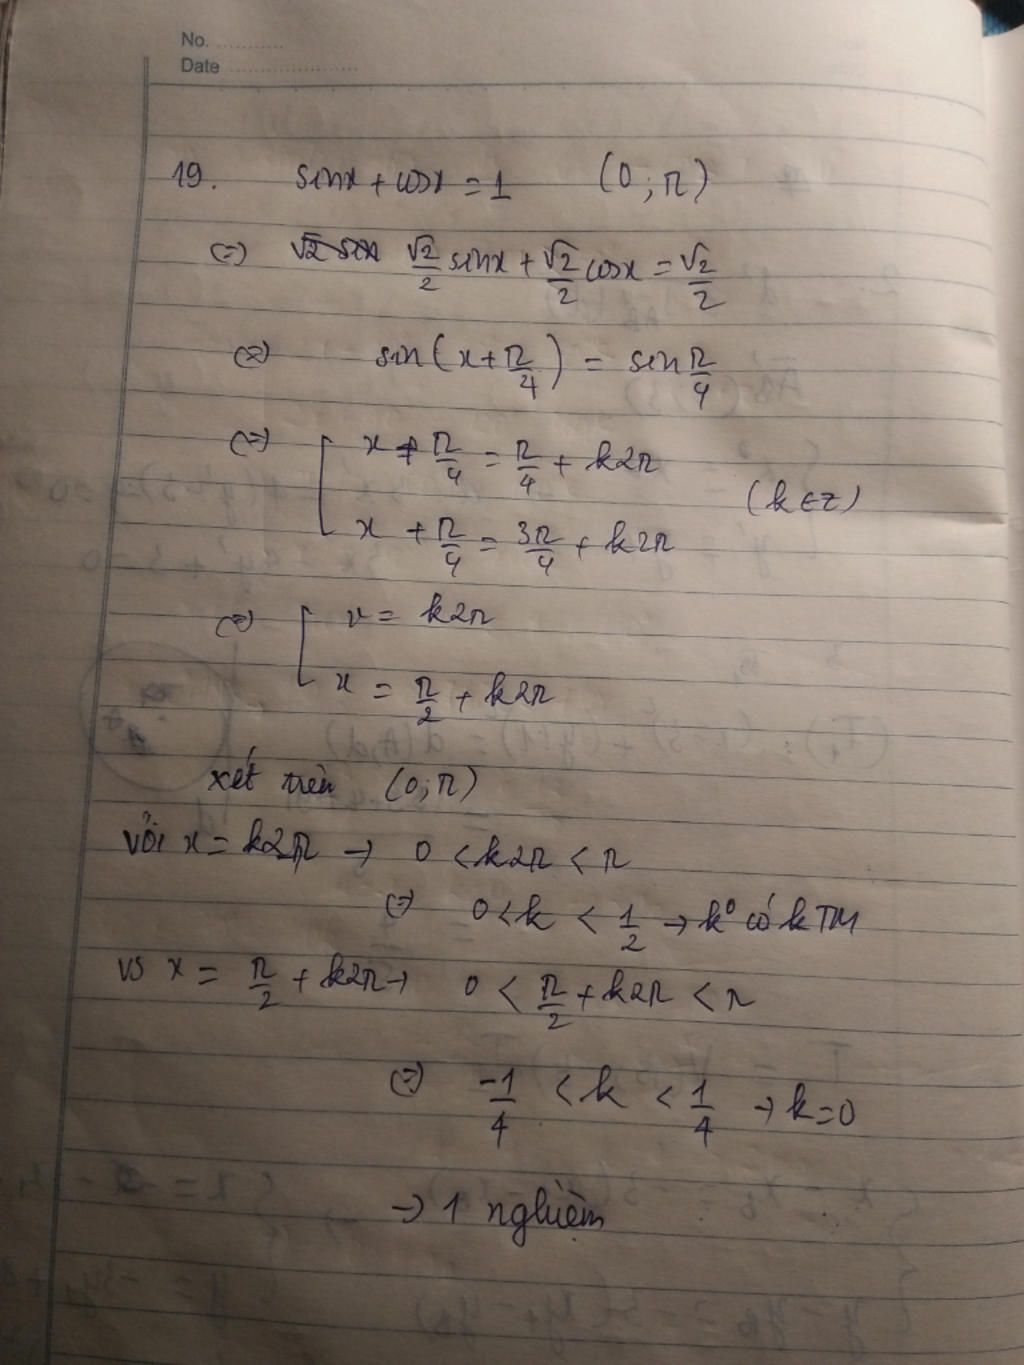 No. ............
Date ......................
19. sinx + cosx = 1 (0; π)
(=) √2 sin √2/2 sinx + √2/2 cosx = √2/2
(=) sin(x + π/4) = sin π/4
(=) [ x + π/4 = π/4 + k2π
x + π/4 = 3π/4 + k2π (k ∈ Z)
(=) [ x = k2π
x = π/2 + k2π
xét trên (0; π)
với x = k2π → 0 < k2π < π
(=) 0 < k < 1/2 → k⁰ có k TM
vs x = π/2 + k2π → 0 < π/2 + k2π < π
(=) -1/4 < k < 1/4 → k = 0
→ 1 nghiệm